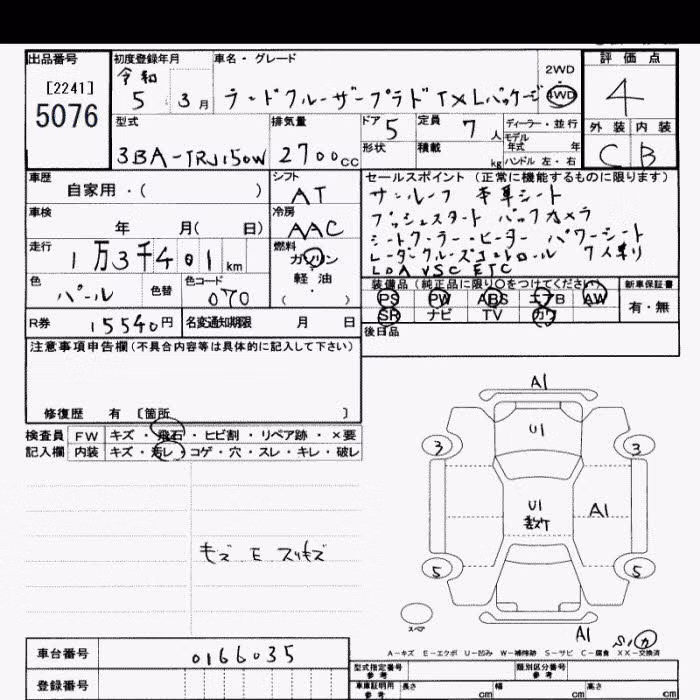 出品番号 初度登録年月 車名・グレード 2WD 評価点
[2241] 令和 4WD
5076 5 3月 ランドクルーザープラド TXLパッケージ 4
型式 排気量 ドア 5 定員 7人 ディーラー・並行 外装 内装
モデル年式 年
3BA-TRJ150W 2700cc 形状 積載 kg ハンドル 左・右 C B
車歴 シフト セールスポイント (正常に機能するものに限ります)
自家用・( ) AT サンルーフ 本革シート
車検 冷房 プッシュスタート バックカメラ
年 月( 日) AAC シートクーラー・ヒーター パワーシート
走行 燃料 レーダークルーズコントロール 7人乗り
1万3千401km ガソリン LDA VSC ETC
色 色替 色コード 軽油 装備品 (純正品に限り○をつけてください) 新車保証書
パール 070 ( ) PS PW ABS エアB AW 有・無
R券 15540円 名変通知期限 月 日 SR ナビ TV カワ
注意事項申告欄(不具合内容等は具体的に記入して下さい) 後日品
修復歴 有 [箇所 ]
検査員 FW キズ・飛石・ヒビ割・リペア跡・×要
記入欄 内装 キズ・汚レ・コゲ・穴・スレ・キレ・破レ
A1
U1
3 3
U1
A1
キズ E スリキズ
5 5
スペア
A1
A-キズ E-エクボ U-凹み W-補修跡 S-サビ C-腐食 XX-交換済
車台番号 0166035
型式指定番号 類別区分番号
参考 参考
登録番号 車庫証明用 長さ 幅 高さ
参考 cm cm cm